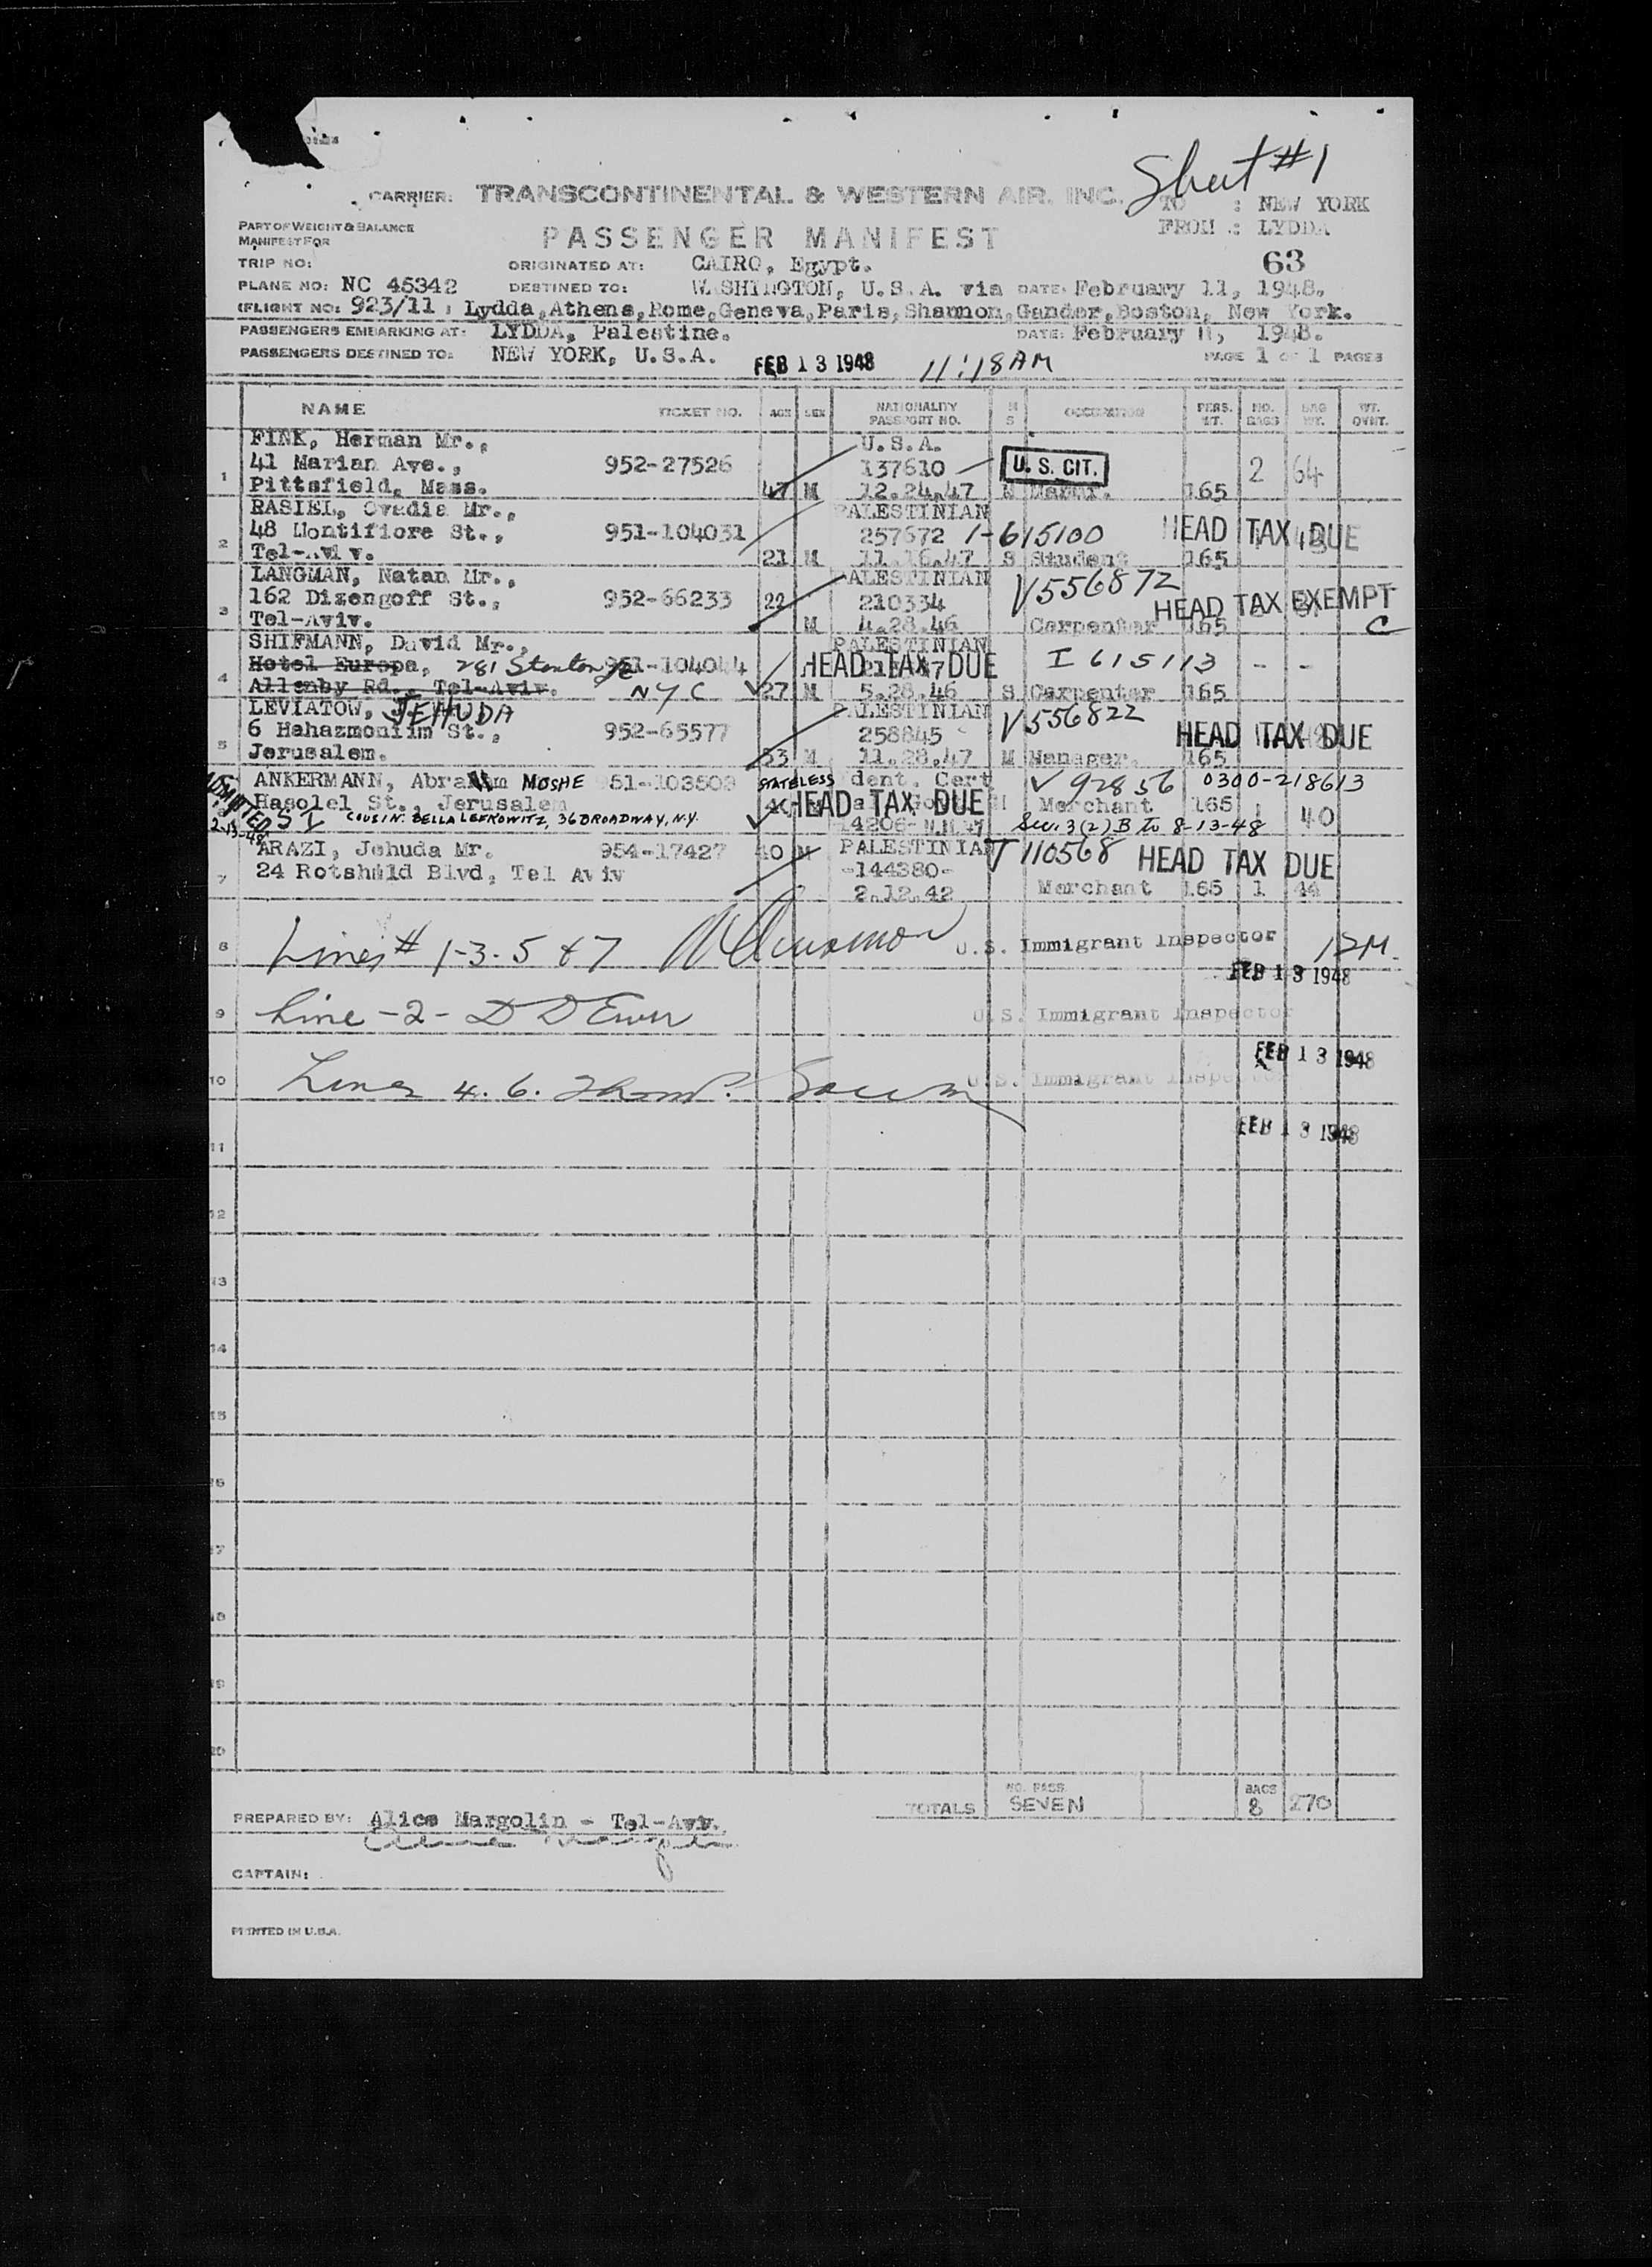 Sheet #1
CARRIER: TRANSCONTINENTAL & WESTERN AIR, INC. TO : NEW YORK
PART OF WEIGHT & BALANCE
MANIFEST FOR
PASSENGER MANIFEST FROM : LYDDA
TRIP NO: ORIGINATED AT: CAIRO, Egypt. 63
PLANE NO: NC 45342 DESTINED TO: WASHINGTON, U.S.A. via DATE: February 11, 1948.
(FLIGHT NO: 923/11 : Lydda,Athens,Rome,Geneva,Paris,Shannon,Gander,Boston, New York.
PASSENGERS EMBARKING AT: LYDDA, Palestine. DATE: February 11, 1948.
PASSENGERS DESTINED TO: NEW YORK, U.S.A. FEB 13 1948 11:18AM PAGE 1 OF 1 PAGES
NAME TICKET NO. AGE SEX NATIONALITY PASSPORT NO. M S OCCUPATION PERS. WT. NO. BAGS BAG WT. WT. OVHT.
FINK, Herman Mr., U.S.A.
1 41 Marian Ave., 952-27526 137610 U. S. CIT. 2 64
Pittsfield, Mass. 47 M 12.24.47 M 165
RASIEL, Ovadia Mr., PALESTINIAN
2 48 Montifiore St., 951-104031 257672 1-615100 HEAD TAX DUE
Tel-Aviv. 21 M 11.16.47 S Student 165
LANGMAN, Natan Mr., PALESTINIAN V556872
3 162 Dizengoff St., 952-66233 22 210334 HEAD TAX EXEMPT
Tel-Aviv. M 4.28.46 Carpenter 165 C
SHIFMANN, David Mr., PALESTINIAN
4 Hotel Europa, 281 Stanton 951-104044 HEAD TAX DUE I 615113 - -
Allenby Rd., Tel-Aviv. NYC 27 M 5.28.46 S Carpenter 165
LEVIATOW, JEHUDA PALESTINIAN V556822
5 6 Hahazmoniim St., 952-65577 258845 HEAD TAX DUE
Jerusalem. 33 M 11.28.47 M Manager. 165
ANKERMANN, Abraham MOSHE 951-103509 STATELESS Ident. Cert V 92856 0300-218613
ADMITTED S I 2-13-48 Hasolel St., Jerusalem HEAD TAX DUE Merchant 165 1 40
COUSIN: BELLA LEFKOWITZ, 36 BROADWAY, N.Y. 14206- Sec. 3(2) B to 8-13-48
ARAZI, Jehuda Mr. 954-17427 40 M PALESTINIAN T 110568 HEAD TAX DUE
7 24 Rotshild Blvd, Tel Aviv -144380-
2.12.42 Merchant 165 1 44
8 Lines # 1-3-5 & 7 U.S. Immigrant Inspector 12M.
FEB 13 1948
9 Line -2- U.S. Immigrant Inspector
FEB 13 1948
10 Lines 4. 6. U.S. Immigrant Inspector
FEB 13 1948
11
12
13
14
15
16
17
18
19
20
TOTALS NO. PASS. SEVEN BAGS 8 270
PREPARED BY: Alice Margolin - Tel-Aviv.
Alice Margolin
CAPTAIN:
PRINTED IN U.S.A.